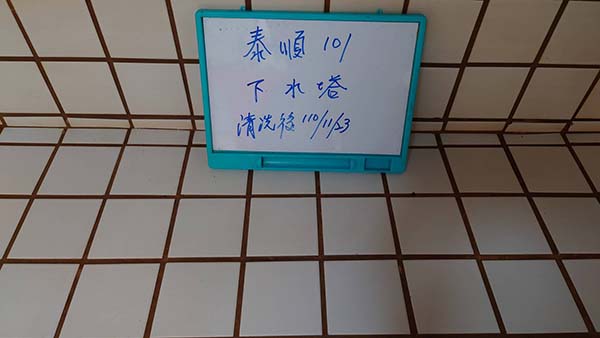 泰順101
下水塔
清洗後110/11/23